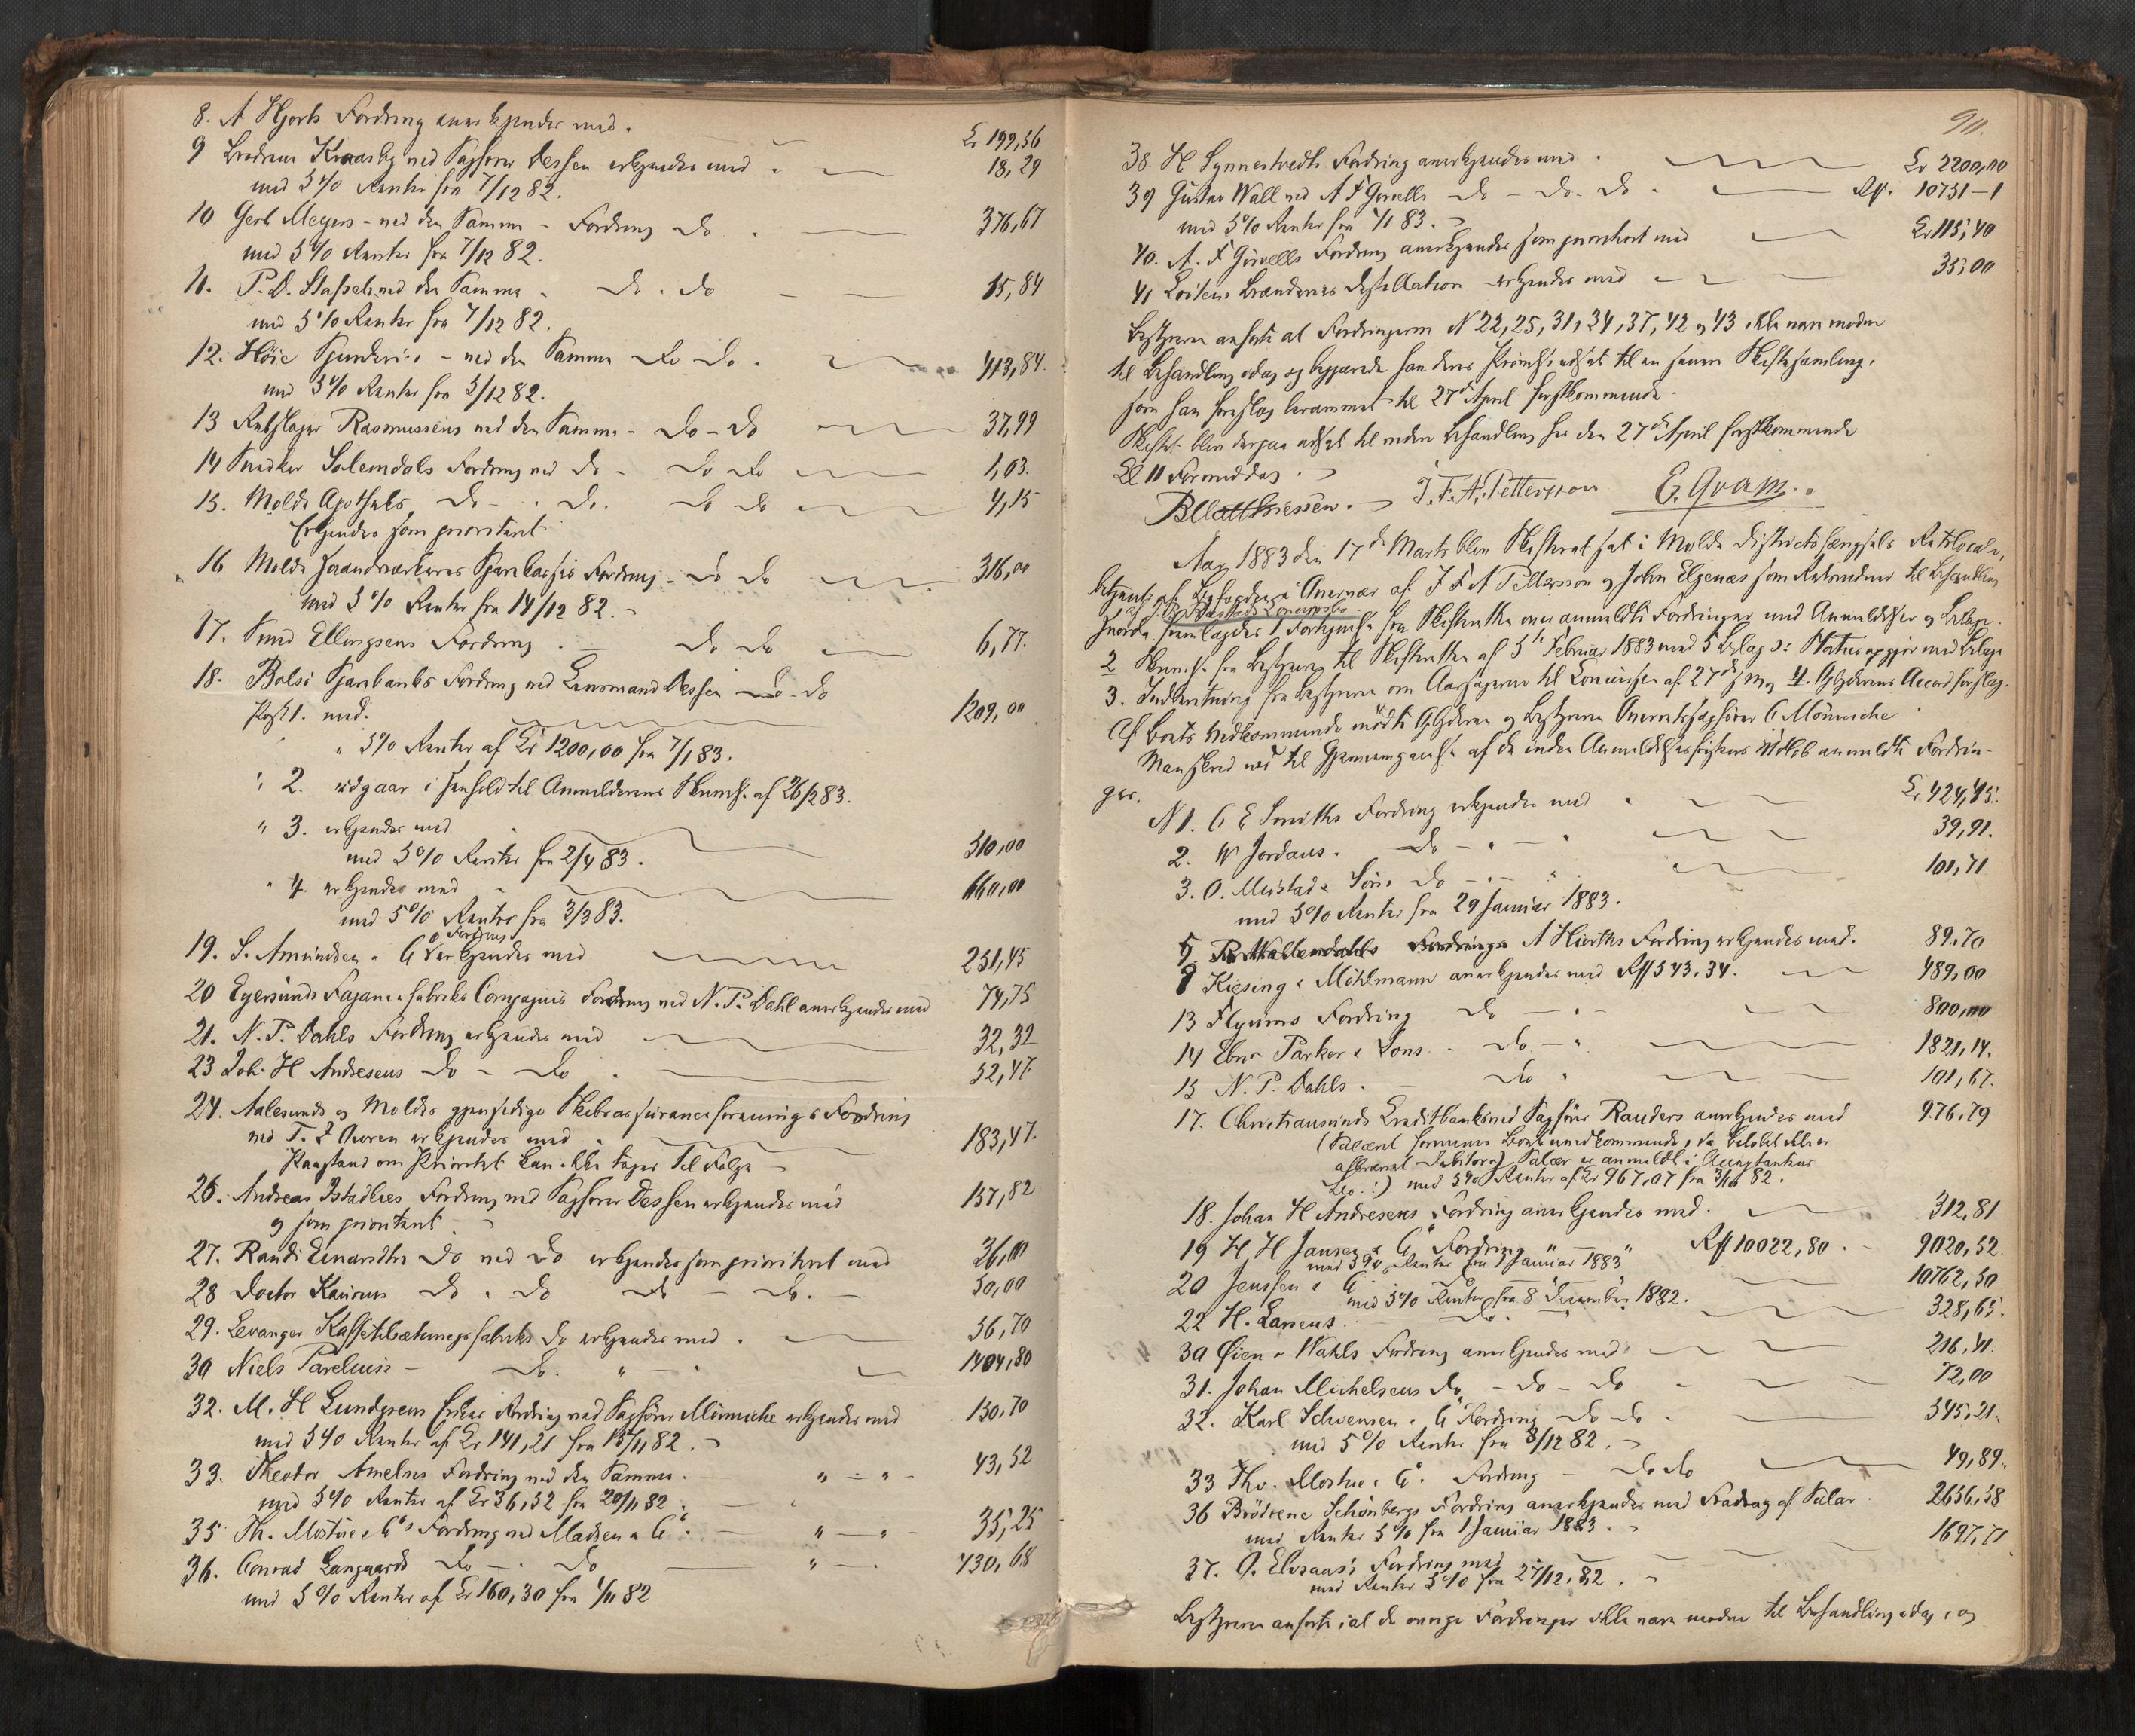 8. A Hjorts Fordring anerkjendes med. Kr 199,56
9 Brødrene Kraasby ved Sagfører Dessen erkjendes med 18,29
med 5% Renter fra 7/12 82.
10 Gerh Meyers - ved den Samme - Fordring do 376,67
med 5% Renter fra 7/12 82.
11. P. D. ved den Samme - do. do 15,84
med 5% Renter fra 7/12 82.
12. Höie - ved den Samme do do. 413,84.
med 5% Renter fra 5/12 82.
13 Rebslager Rasmussens ved den Samme - do - do 37,99
14 Snedker Solemdals Fordring ved do - do do 1,03.
15. Molde Apotheks do - . do. do do 4,15
Erkjendes som prioritert
16 Molde Haandværkeres Sparekasses Fordring - do do 316,00
med 5% Renter fra 14/12 82. -
17. Ellingsens Fordring . - do do 6,77.
18. Bolsö Sparebanks Fordring ved Lensmand Dessen do. do
Post 1. med. 1209,00
" 5% Renter af Kr 1200,00 fra 7/1 83.
" 2. udgaar i Henhold til Anmelderens Skrivelse af 26/2 83.
" 3. erkjendes med 310,00
med 5% Renter fra 2/4 83.
" 4. erkjendes med 660,00
med 5% Renter fra 3/3 83.
19. S. Amundsen & Co Fordring erkjendes med 251,45
20 Egersunds Fayancefabriks Compagnies Fordring ved N. P. Dahl anerkjendes med 74,75
21. N. P. Dahls Fordring erkjendes med 32,32
23 Joh. H Andresens do - do . 52,47.
24. Aalesunds og Moldes gjensidige Skibsassuranceforenings Fordring
ved T. Z. erkjendes med . 183,47.
Paastand om Prioritet kan ikke tages til Følge -
26. Andreas Fordring ved Sagfører Dessen erkjendes med 157,82
og som prioritert -
27. Randi Einarsdtrs do ved do erkjendes som prioritert med 36,00
28 Doctor do . do do - do. - 50,00
29. Levanger Kaffetilsætningsfabriks do erkjendes med . 36,70
30 Niels Parelius's - do. " - 1404,80
32. M. H Lundgrens Enkes Fordring ved Sagfører Mönniche erkjendes med 150,70
med 5% Renter af Kr 141,21 fra 15/11 82. -
33. Theodor Amelns Fordring ved den Samme. " - " - 43,52
med 5% Renter af Kr 36,52 fra 20/11 82. -
35 Th. Mostue & Co's Fordring ved Madsen & Co. - " - " - 35,25
36. Conrad Langaards do - . do " - . 430,68
med 5% Renter af Kr 160,30 fra 1/11 82
911.
38. H Synnestvedts Fordring anerkjendes med . Kr 2200,00
39 Gustav Wall ved A F do - do - do . Rp. 10751-1
med 5% Renter fra 1/1 83. -
40. A. F Fordring anerkjendes som prioritert med Kr 115,40
41 Loitens Brænderies Destillation erkjendes med - 35,00
Bestyreren anførte at Fordringerne N 22, 25, 31, 34, 37, 42 og 43 ikke vare modne
til Behandling idag og begjærede han deres Prövelse udsat til en senere Skiftesamling,
som han foreslog berammet til 27de April førstkommende.
Skiftet blev derpaa udsat til videre Behandling her den 27de April førstkommende
Kl 11 Formiddag. -
B Matthiessen. - J. F. A. Pettersson E. Qvam.
Aar 1883 den 17de Marts blev Skifteret sat i Molde Districtsfængsels Retslocale,
betjent af Byfogden i Overvær af J F A Pettersson og John Elgenæs som Retsvidner til Behandling
af
Hvorda fremlagdes 1 Fortegnelse fra Skifteretten over anmeldte Fordringer med Anmeldelser og Bilage.
2 Skrivelse fra Bestyreren til Skifteretten af 5te Februar 1883 med 5 Bilag : Statusopgjør med Bilage
3. Indberetning fra Bestyreren om Aarsagerne til Concursen af 27de og 4. Accordforslag.
Af Boets Vedkommende mödte og Bestyreren Overretssagfører C Mönniche
Man skred nu til Gjennemgaaelse af de inden Anmeldelsesfristens Udløb anmeldte Fordrin-
ger.
N 1. C E Smiths Fordring erkjendes med . Kr. 424,45.
2. W Jordans. do - " - " 39,91.
3. O. Mustad & Söns do - . - " 101,71
med 5% Renter fra 29 Januar 1883.
5 A Hiorths Fordring erkjendes med. 89,70
8 Kiesing & Möhlmann anerkjendes med Rp 543,34. 489,00
13 Flyums Fordring do - " - 800,00
14 Ebnr Parker & Sons - do - " 1821,14.
15 N. P. Dahls. - do " 101,67.
17. Christiansunds Creditbanks ved Sagfører Randers anerkjendes med 976,79
(Salæret Boet uvedkommende, da Beløbet ikke er
afkrævet Debitor.) Salær er anmeldt i
med 5% Renter af Kr 967,07 fra 3/10 82.
18. Johan H Andresens Fordring anerkjendes med. 312,81
19 H. H Jansen & Co Fordring " " Rp 10022,80. - 9020,52
med 5% Renter fra 1 Januar 1883
20 Jenssen & Co - do - " 10762,50
med 5% Renter fra 8 December 1882.
22 H. Larsens. - do. 328,65.
30 Öien & Wahls Fordring anerkjendes med 216,41.
31. Johan Michelsens do, - do - do 72,00
32. Karl Schwensen & Co Fordring do do . 545,21.
med 5% Renter fra 8/12 82. -
33 Thv. Mostue & Co. Fordring - do do 49,89.
36 Brödrene Schönbergs Fordring anerkjendes med Fradrag af Salær. 2656,58.
med Renter 5% fra 1 Januar 1883. - 1697,71
37. O. Elvsaas's Fordring med
med Renter 5% fra 27/12. 82. -
Bestyreren anførte, at de øvrige Fordringer ikke vare modne til Behandling idag, og